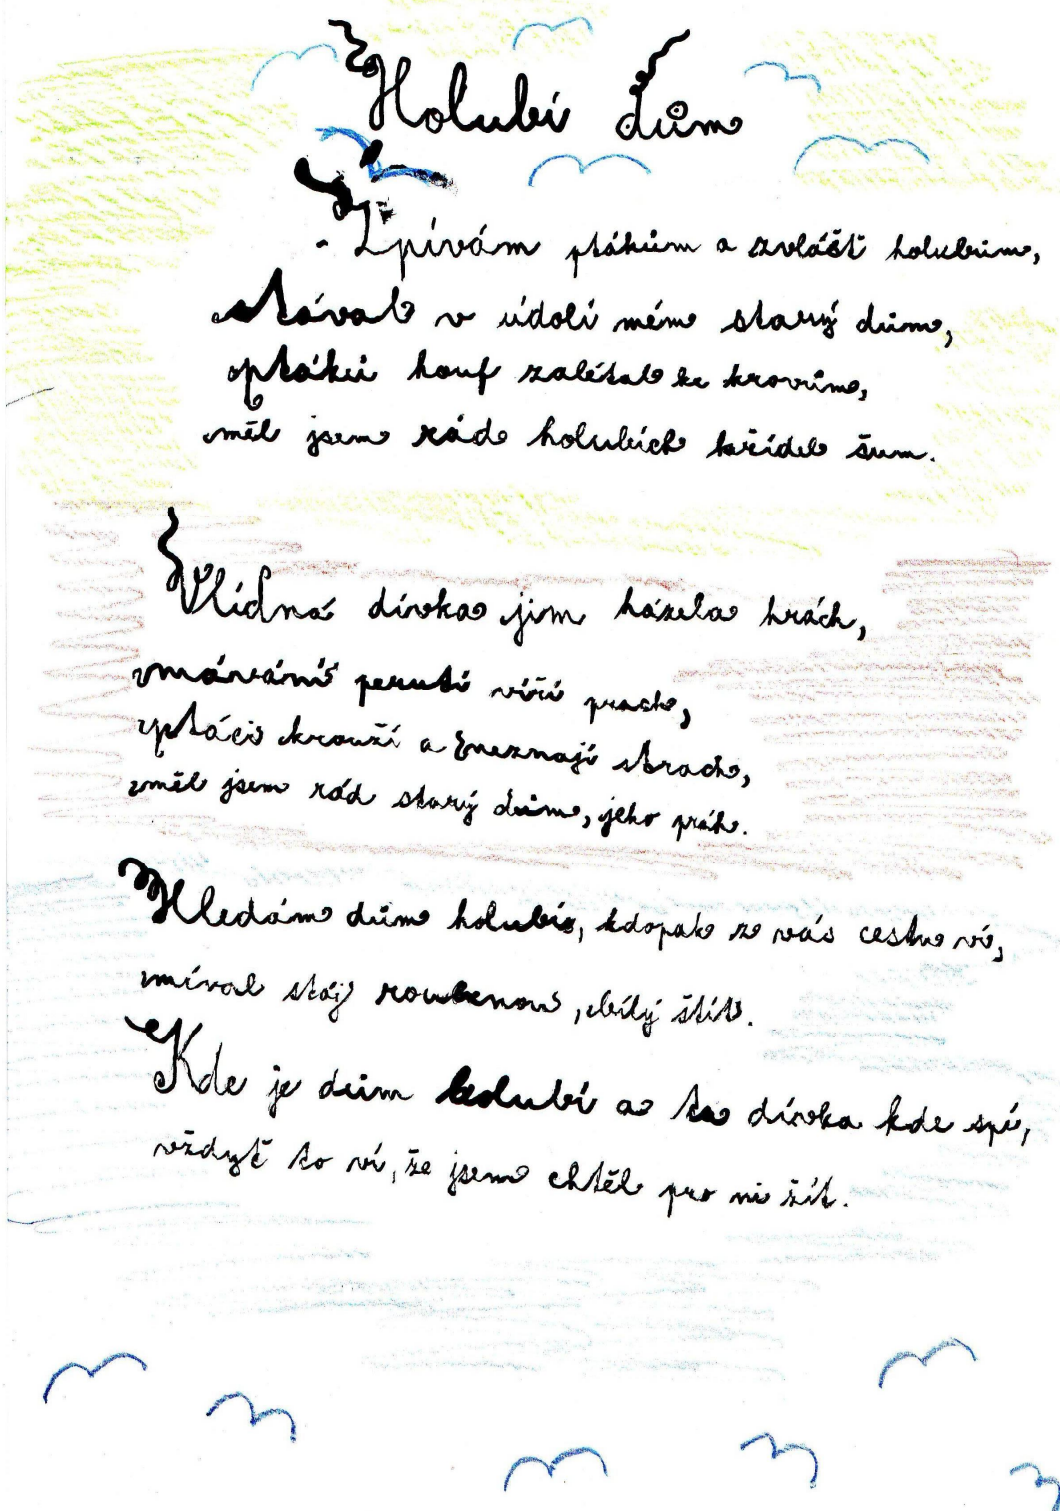 Holubí dům
Zpívám ptákům a zvlášť holubům,
stával v údolí mém starý dům,
ptáků houf zalétal ke krovům,
měl jsem rád holubích křídel šum.
Vlídná dívka jim házela hrách,
mávání perutí víří prach,
ptáci krouží a neznají strach,
měl jsem rád starý dům, jeho práh.
Hledám dům holubí, kdopak z vás cestu ví,
míval stáj roubenou, bílý štít.
Kde je dům holubí a ta dívka kde spí,
vždyť to ví, že jsem chtěl pro ni žít.